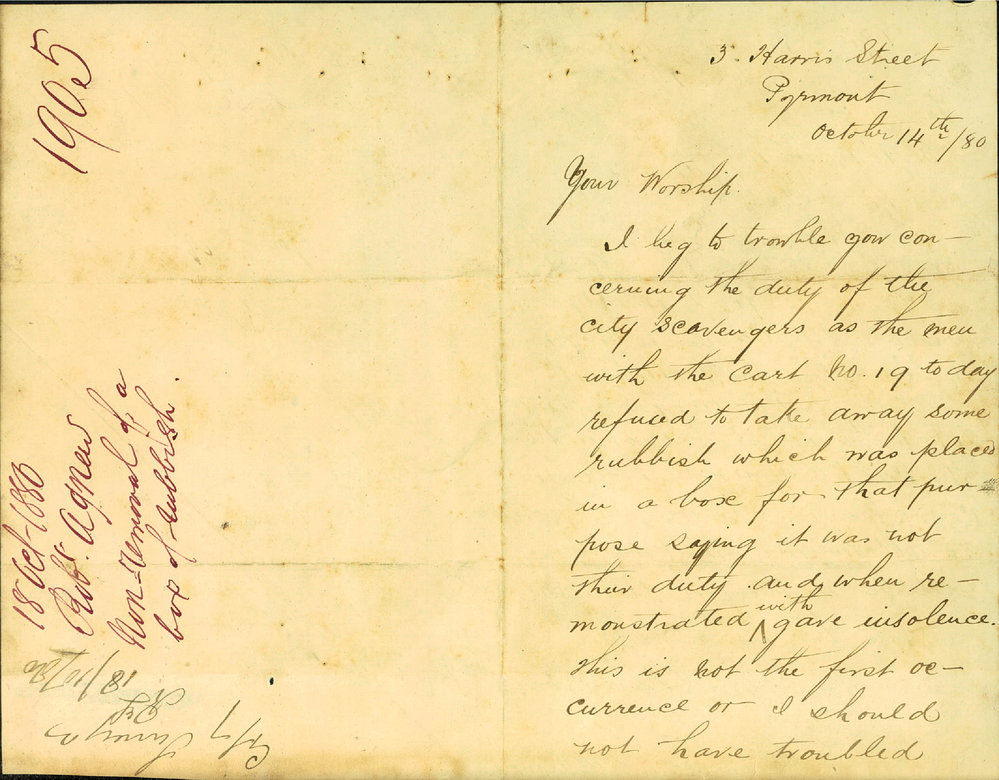 1905
18 Oct 1880
Robt. Agnew
Non-removal of a
box of rubbish.
18/10/80
3. Harris Street
Pyrmont
October 14th/80
Your Worship.
I beg to trouble you con—
cerning the duty of the
city scavengers as the men
with the cart No. 19 today
refused to take away some
rubbish which was placed
in a box for that pur—
pose saying it was not
their duty and when re—
monstrated with gave insolence.
this is not the first oc—
currence or I should
not have troubled